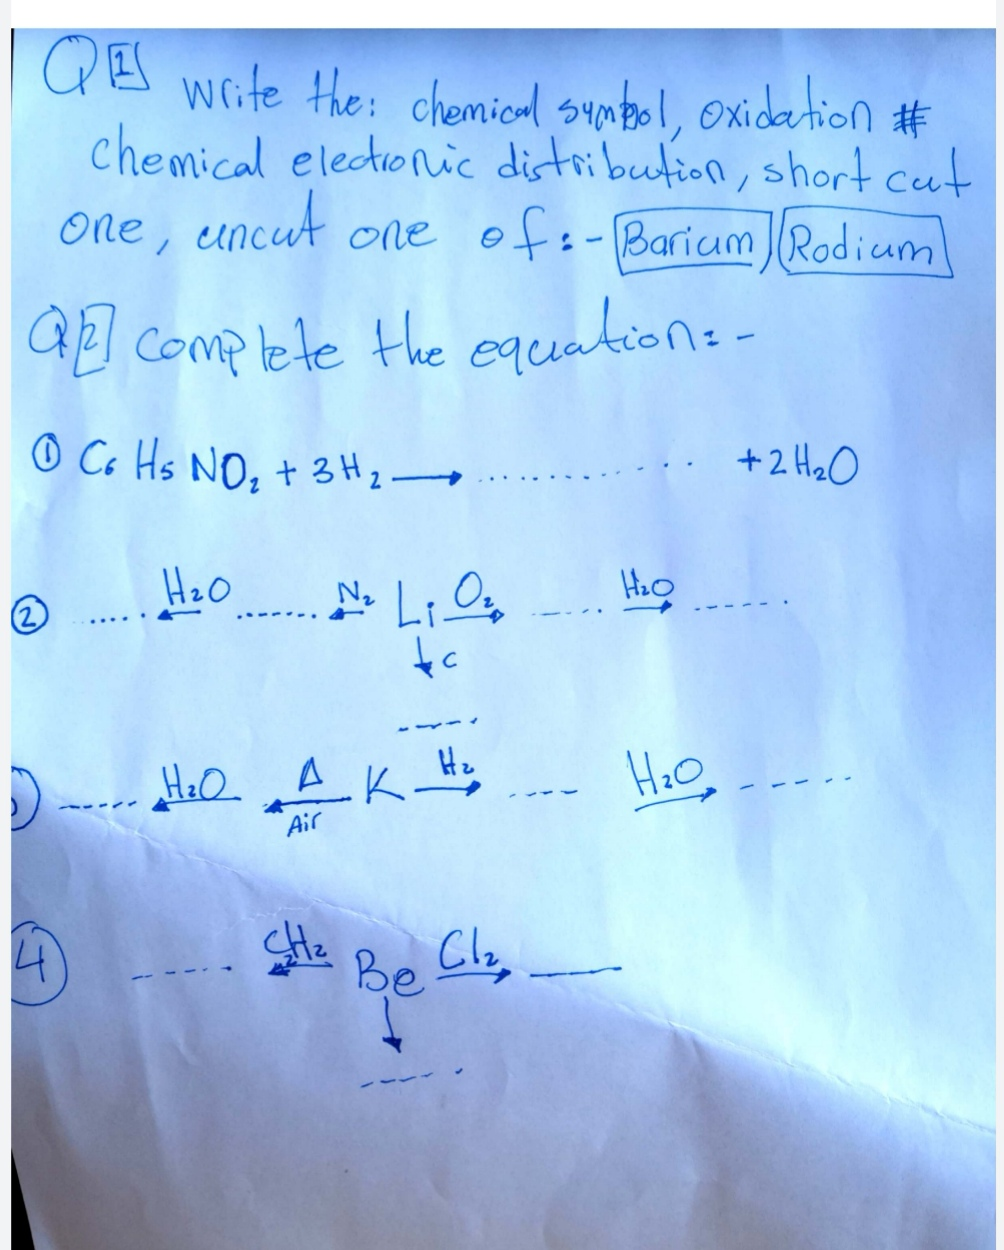 Q[1] write the: chemical symbol, oxidation #
chemical electronic distribution, short cut
one, uncut one of:- Barium Rodium
Q[2] complete the equation:-
① C₆ H₅ NO₂ + 3H₂ → ............ + 2H₂O
② ..... ←H₂O ....... ←N₂ Li O₂→ ...... H₂O→ .......
↓ C
-----
------ ←H₂O ←Δ Air K H₂→ .... H₂O→ ------
④ ------ Be Cl₂→ ____
↓
-----